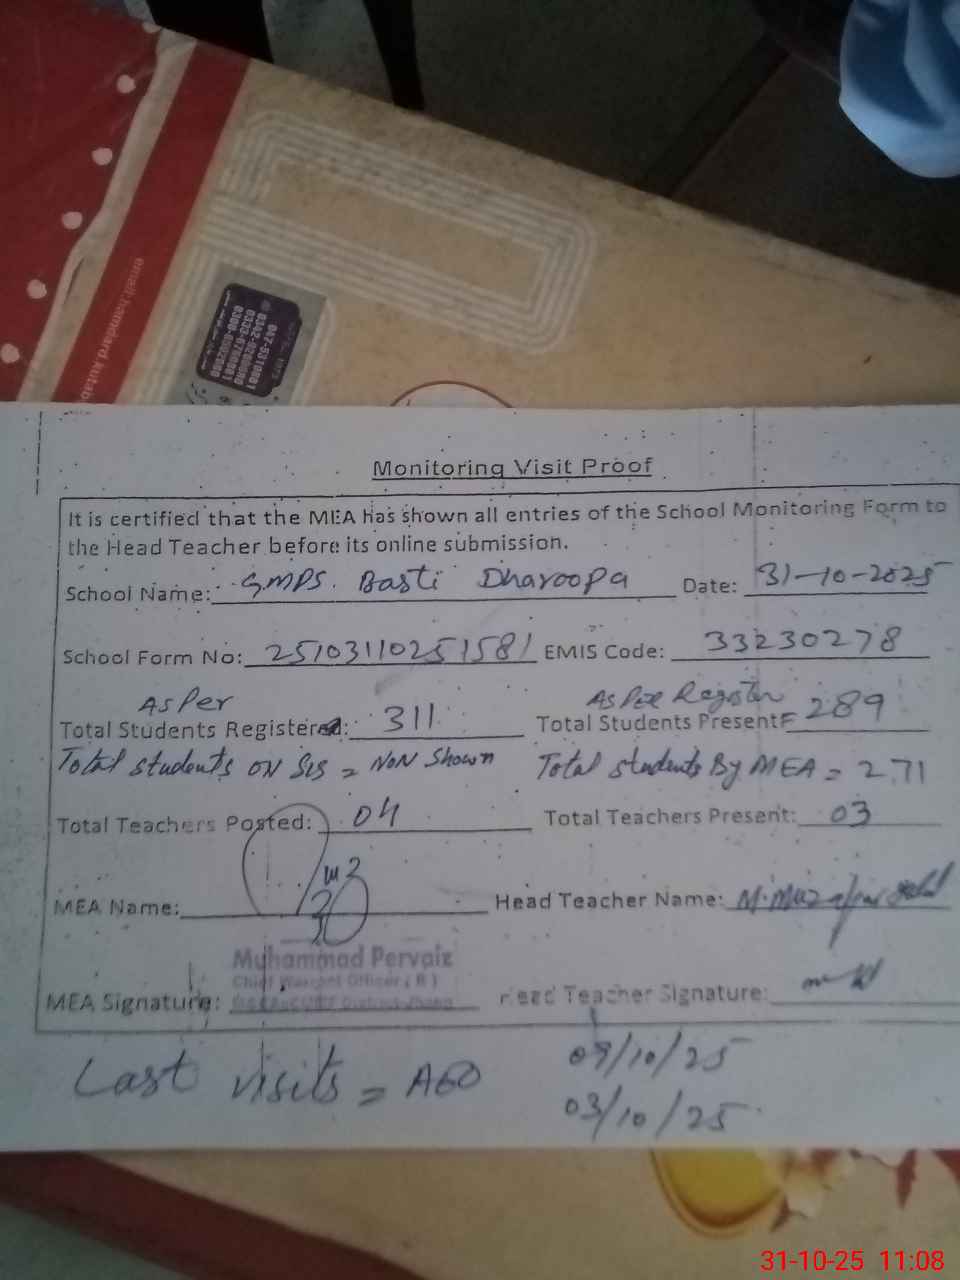 email:hamdard.kutab
047-5310801
0342-8286080
0333-6768081
0300-
Monitoring Visit Proof
It is certified that the MEA has shown all entries of the School Monitoring Form to
the Head Teacher before its online submission.
School Name: GMPS. Basti Dharoopa Date: 31-10-2025
School Form No: 25103110251581 EMIS Code: 33230278
As Per As Per Register
Total Students Registered: 311 Total Students Present: 289
Total students ON SIS = NON Shown Total students By MEA = 271
Total Teachers Posted: 04 Total Teachers Present: 03
MEA Name: Head Teacher Name: M.
Muhammad Pervaiz
Chief Warrant Officer (R)
MEA Signature: District Jhang Head Teacher Signature:
Last visits = AEO 09/10/25
03/10/25
31-10-25 11:08